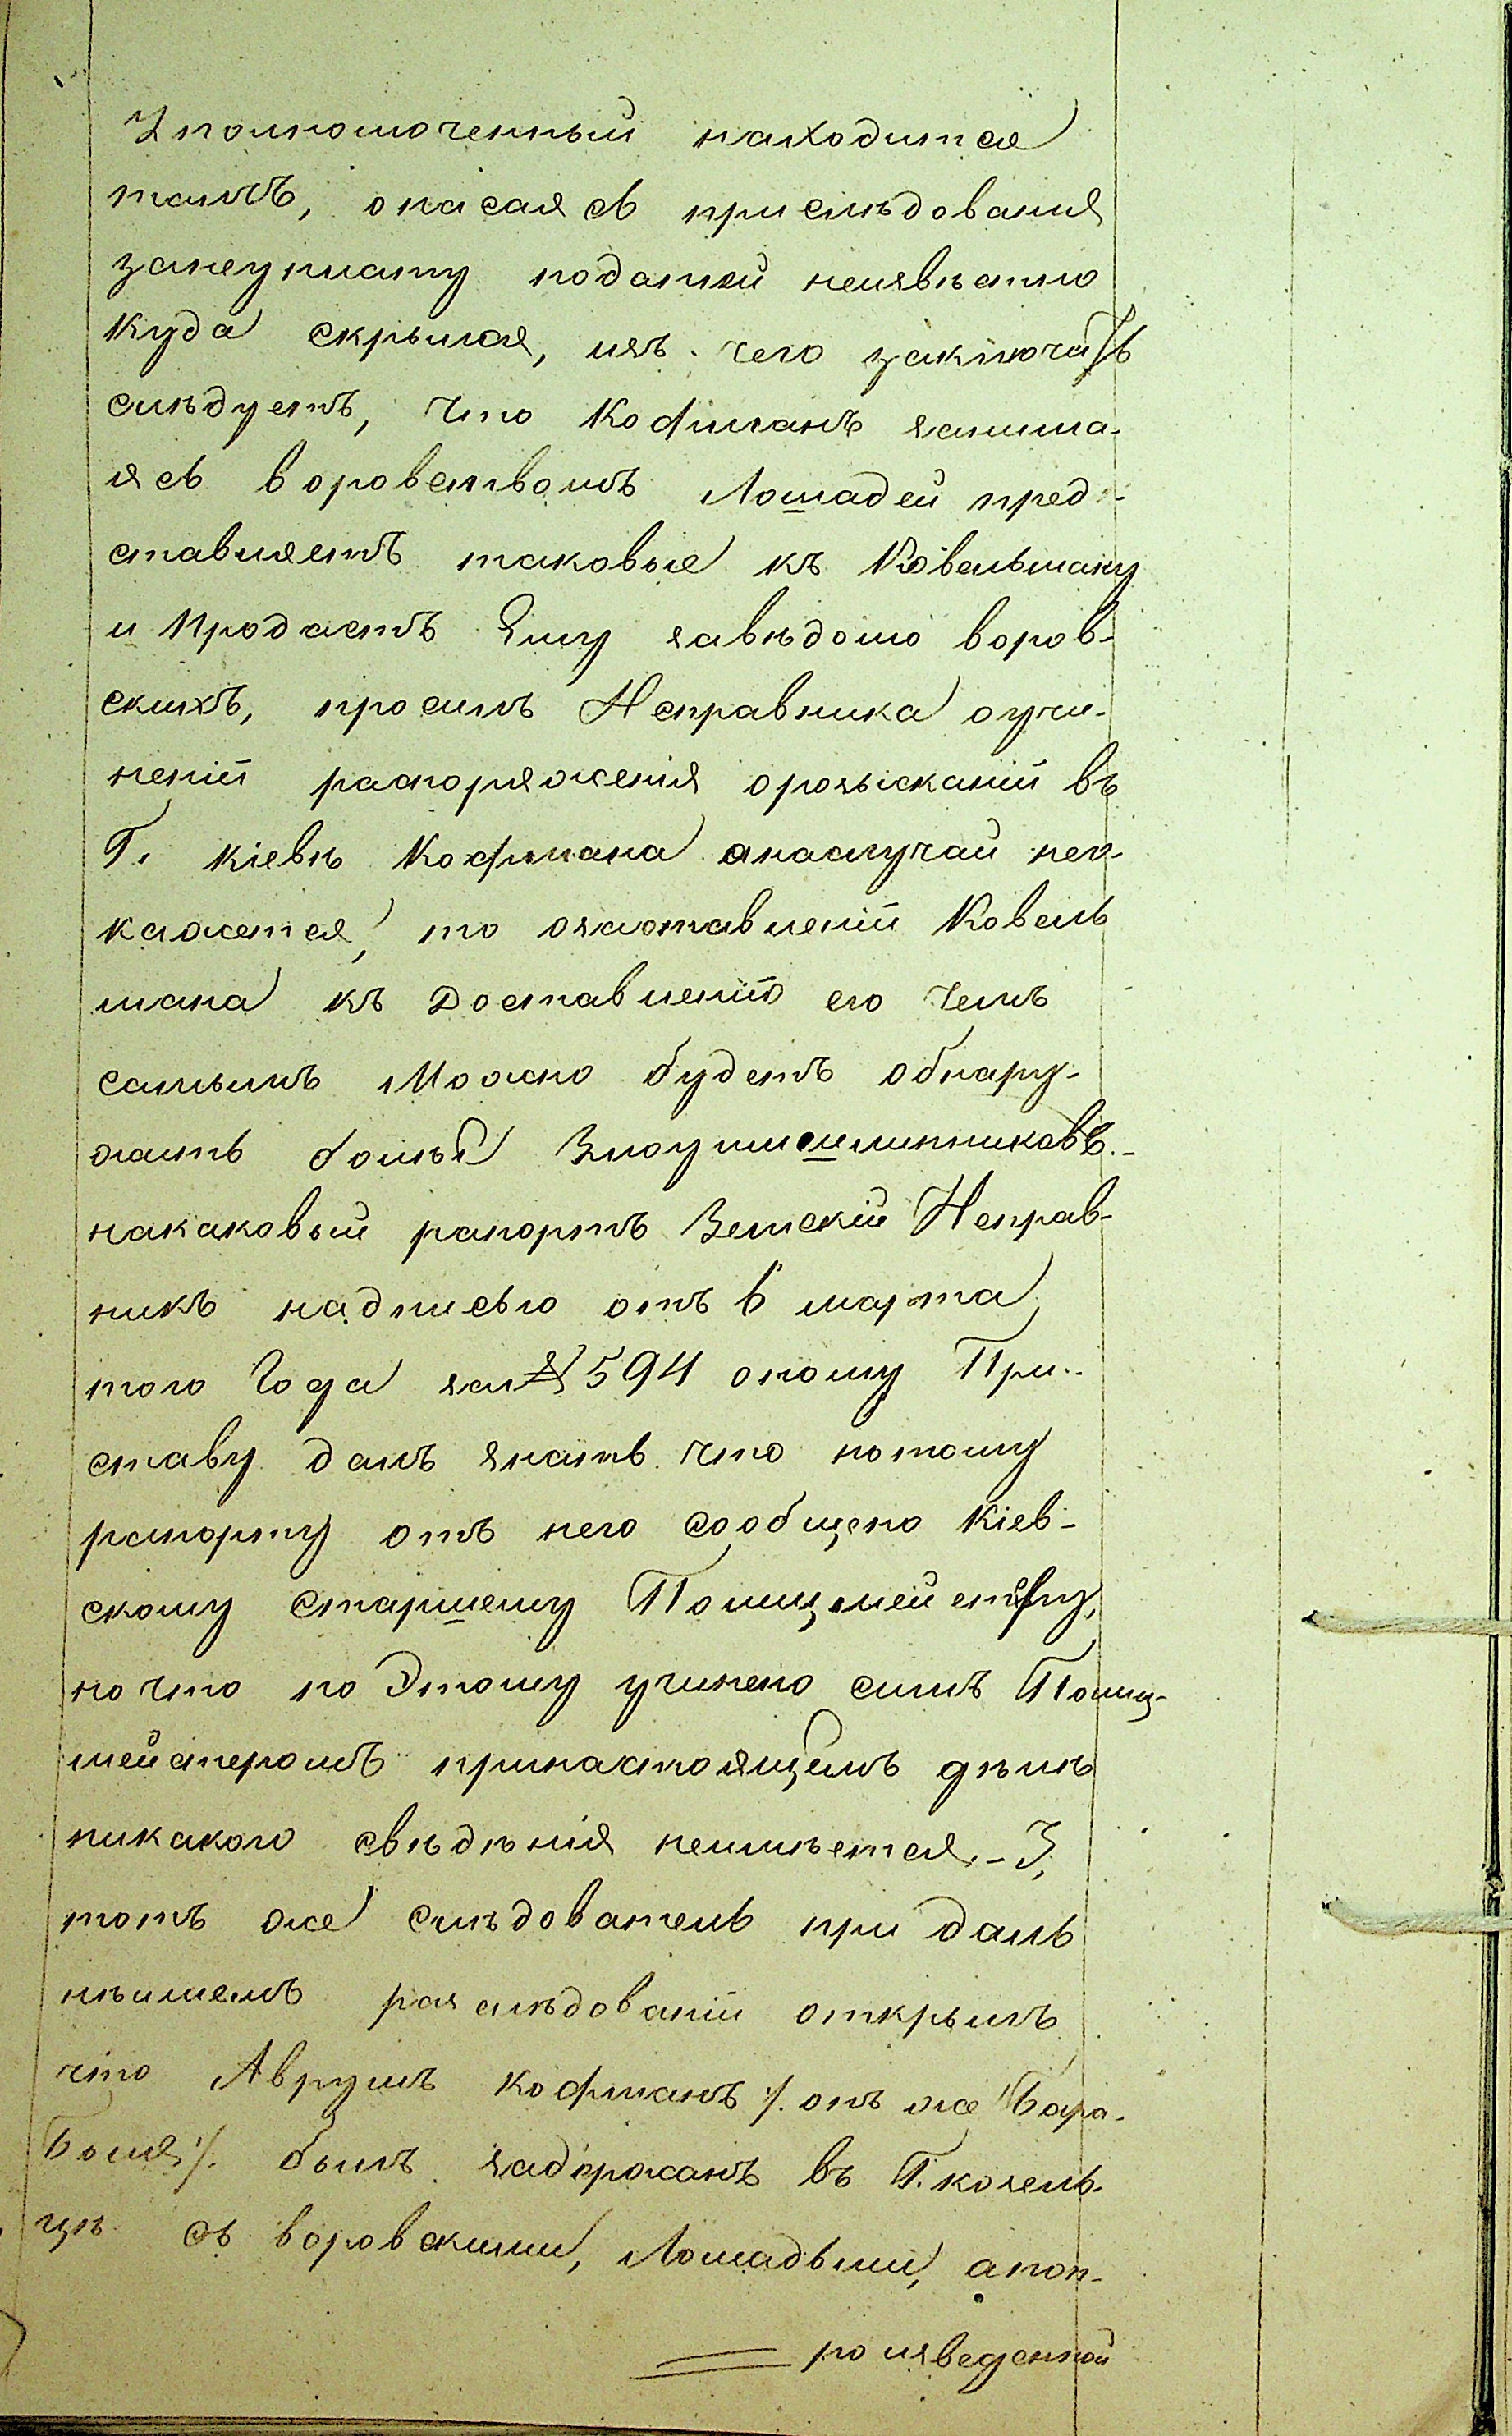 Уполномоченный находится
тамъ, опасаясь приследования
занеуплату податей неизвѣстно
куда скрылся, изъ чего заключать
слѣдуетъ, что Кофманъ занима-
ясь воровствомъ Лошадей пред-
ставляетъ таковые къ Ковельману
и продаетъ Ему завѣдомо воров-
скихъ, просилъ Исправника оучи-
неніи распоряженія орозысканіи въ
Г. Кіевѣ Кофмана анаслучай нео-
кажется, то озаставленіи Ковель
мана къ доставленію его чемъ
самымъ Можно будетъ обнару-
жить болѣе Злоумышлинниковъ.-
накаковый рапортъ Земскій Исправ-
никъ надписью отъ 6 марта
того Года за № 594 оному При-
ставу далъ знать что потому
рапорту отъ него сообщено Кіев-
скому старшему Полицмейстеру,
но что по Этому учинено симъ Полиц-
мейстеромъ принастоящемъ дѣлѣ
никакого свѣдѣнія неимѣется.- 3,
тотъ же слѣдователь при даль
нѣишемъ разслѣдованіи открылъ
что Аврумъ Кофманъ /. онъ же Бара-
Боля /. былъ задержанъ въ Г. козель-
цѣ съ воровскими, Лошадьми, апоп-
роизведенной